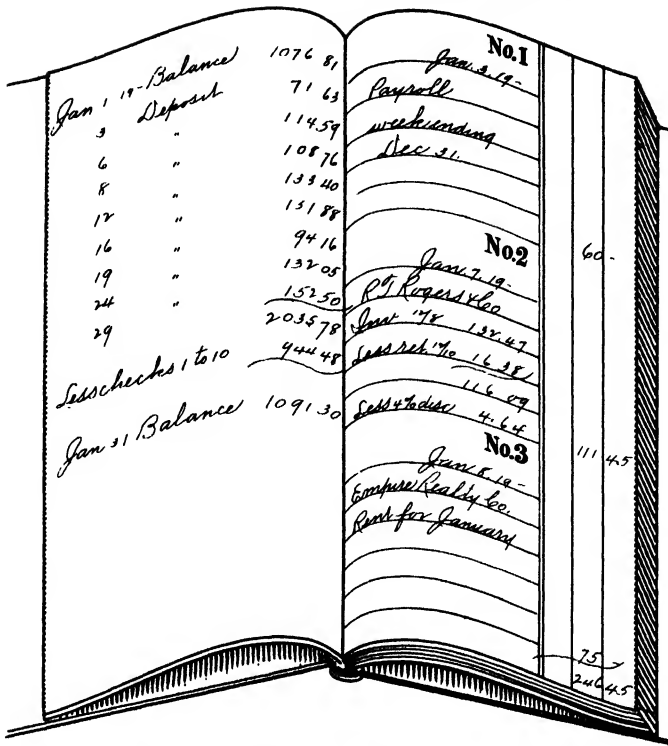 Jan 1 19- Balance 1076 81
3 Deposit 71 63
6 " 114.59
8 " 108 76
12 " 133 40
16 " 151 88
19 " 94 16
24 " 132 05
29 152 50
2035 78
Less checks 1 to 10 944 48
Jan 31 Balance 1091 30
No.1
Jan. 3, 19-
Payroll
week ending
Dec 31.
60 -
No.2
Jan. 7, 19-
R J Rogers & Co
Inv 1/8 132.47
Less ret. 1/10 16 38
116 09
Less 4% disc 4.64
111 45
No.3
Jan. 8, 19-
Empire Realty Co.
Rent for January
75 -
246 45